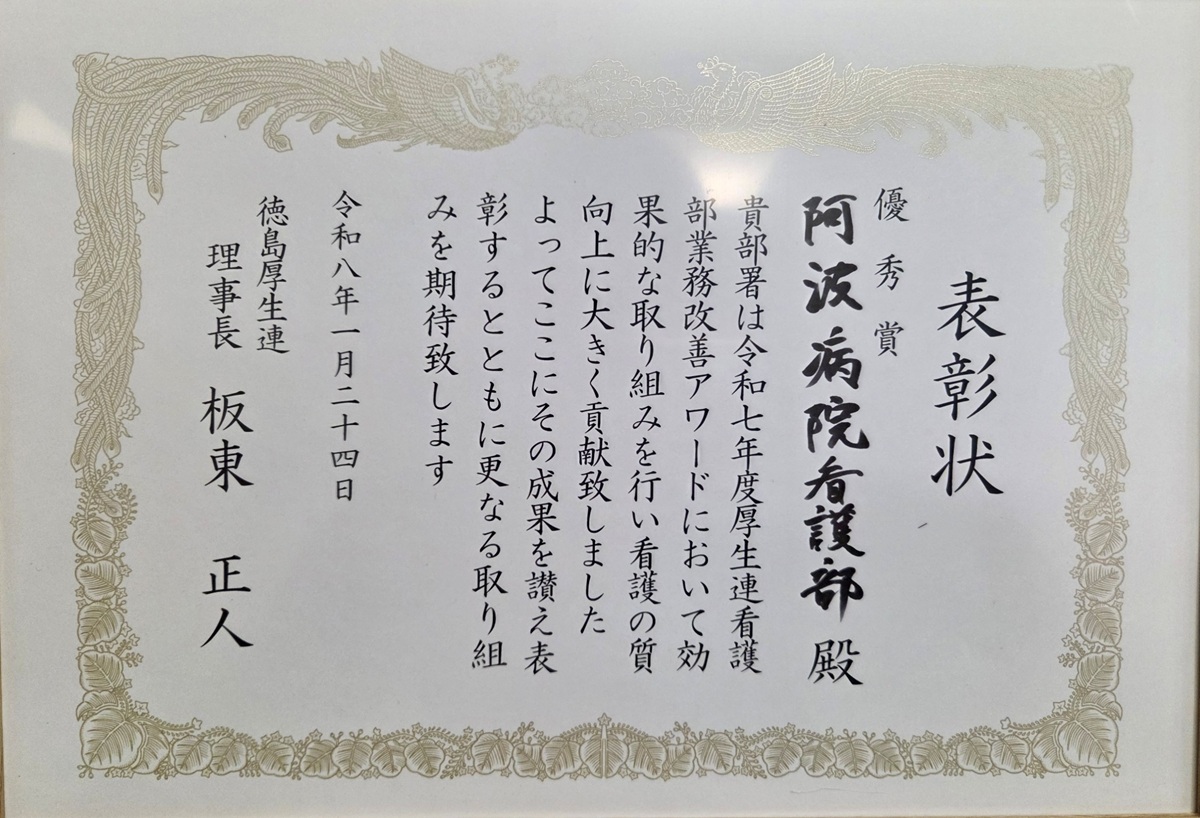 表彰状
優秀賞
阿波病院看護部 殿
貴部署は令和七年度厚生連看護
部業務改善アワードにおいて効
果的な取り組みを行い看護の質
向上に大きく貢献致しました
よってここにその成果を讃え表
彰するとともに更なる取り組
みを期待致します
令和八年一月二十四日
徳島厚生連
理事長 板東 正人